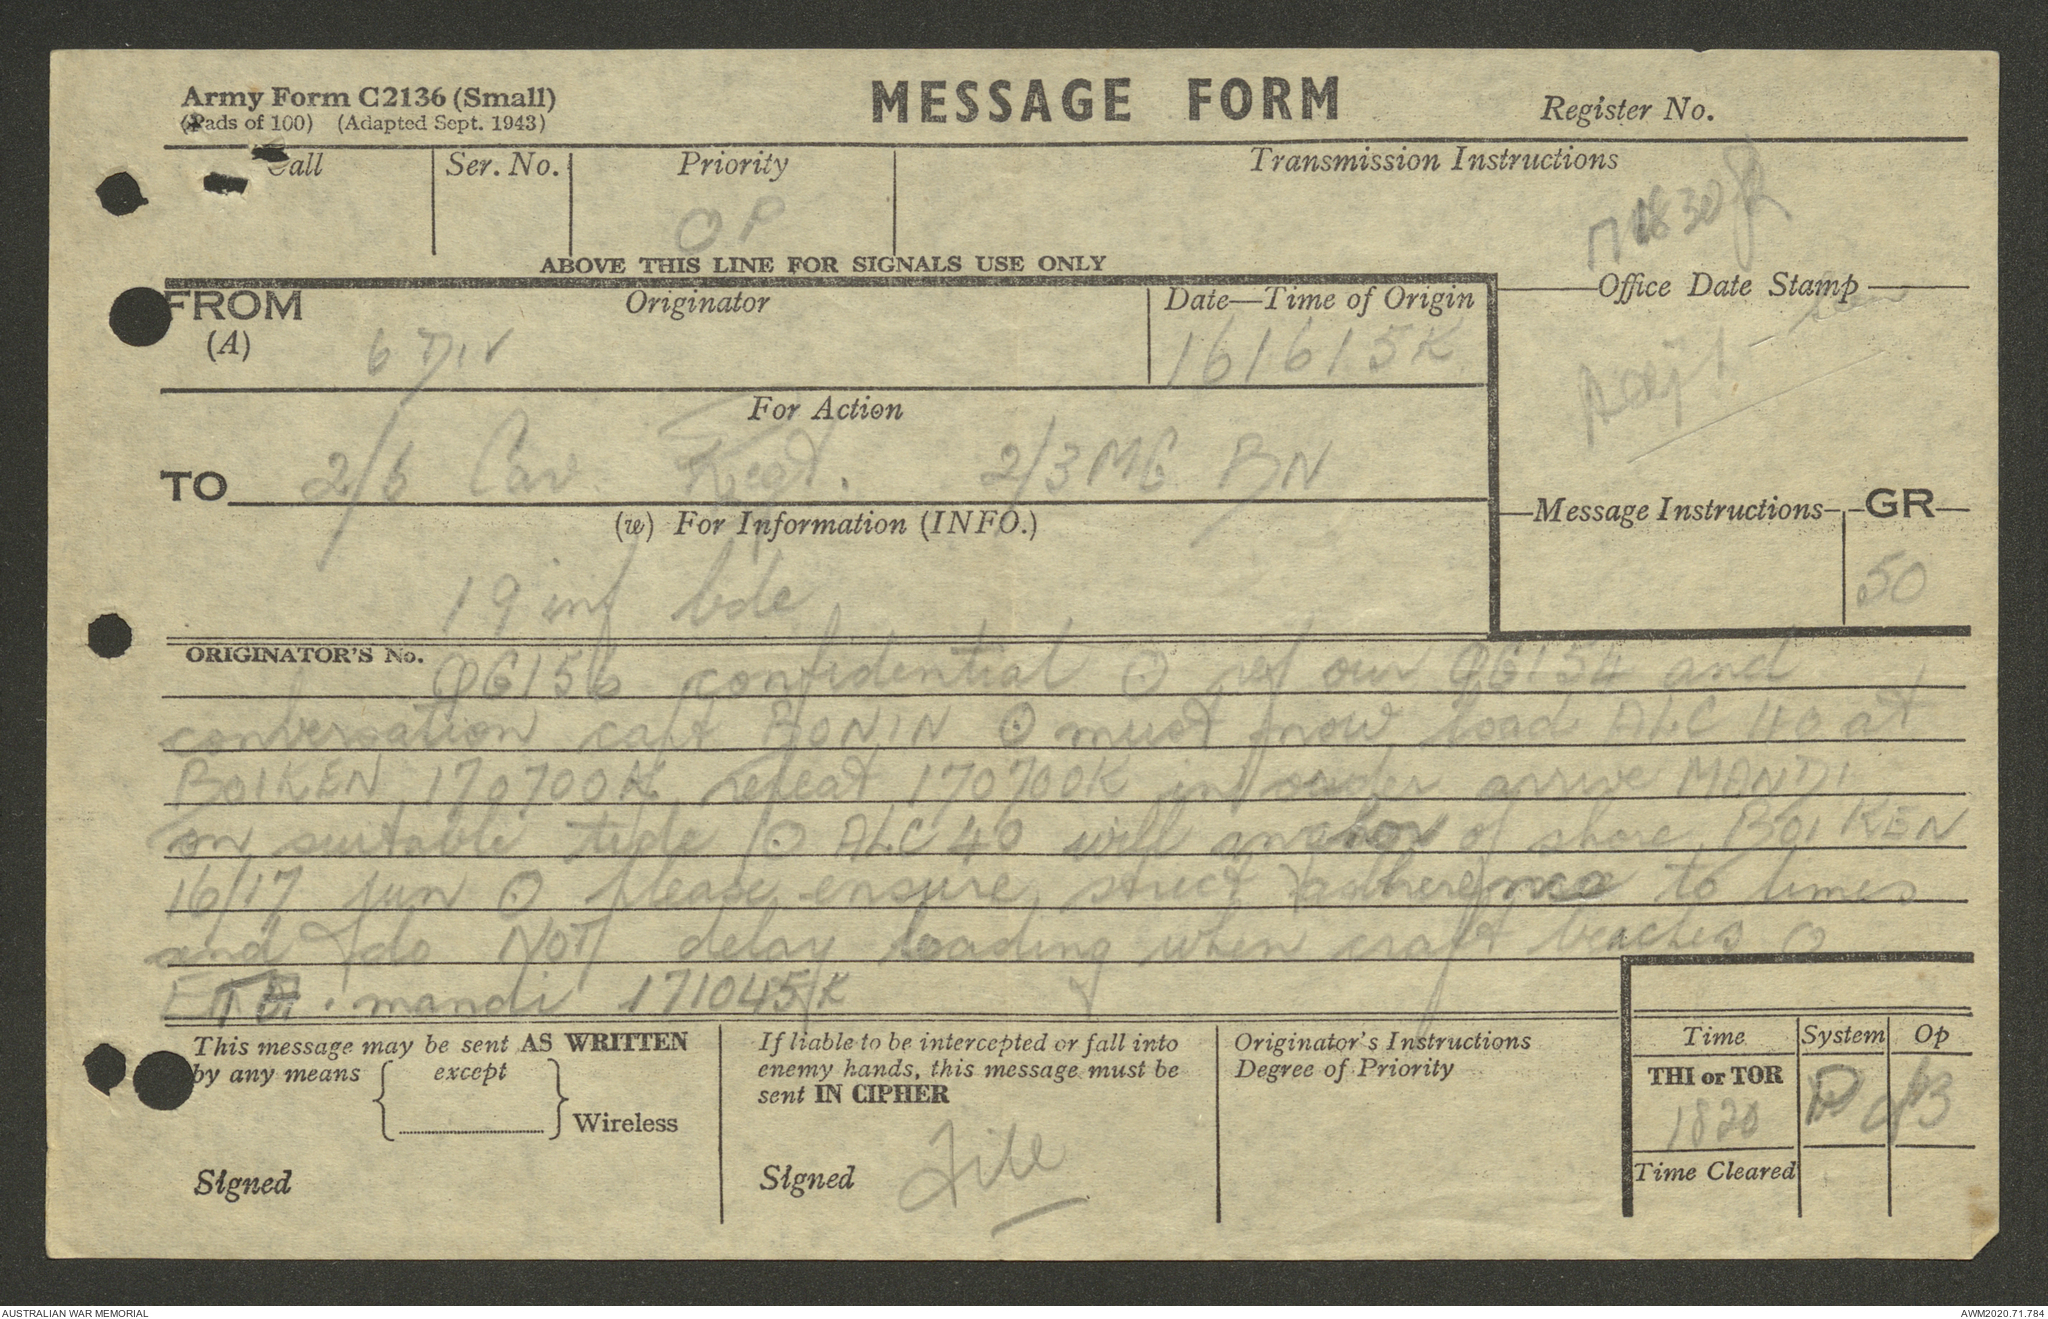 Army Form C2136 (Small)
(Pads of 100) (Adapted Sept. 1943)
MESSAGE FORM
Register No.
Call
Ser. No.
Priority
Transmission Instructions
OP
1830
ABOVE THIS LINE FOR SIGNALS USE ONLY
Office Date Stamp
FROM
(A)
Originator
Date—Time of Origin
6 Div
161615K
For Action
TO
2/6 Cav Regt. 2/3 MG BN
Message Instructions
GR
50
(w) For Information (INFO.)
19 inf bde
ORIGINATOR'S No.
QG156 confidential ⊙ ref our QG154 and
conversation capt RONIN ⊙ must now load ALC 40 at
BOIKEN 170700K repeat 170700K in order arrive MANDI
on suitable tide ⊙ ALC 40 will anchor of shore BOIKEN
16/17 jun ⊙ please ensure strict adherence to times
and do NOT delay loading when craft beaches ⊙
ETA. mandi 171045K
This message may be sent AS WRITTEN
by any means except
Wireless
Signed
If liable to be intercepted or fall into
enemy hands, this message must be
sent IN CIPHER
Signed
File
Originator's Instructions
Degree of Priority
Time
System
Op
THI or TOR
1820
Time Cleared
AUSTRALIAN WAR MEMORIAL
AWM2020.71.784